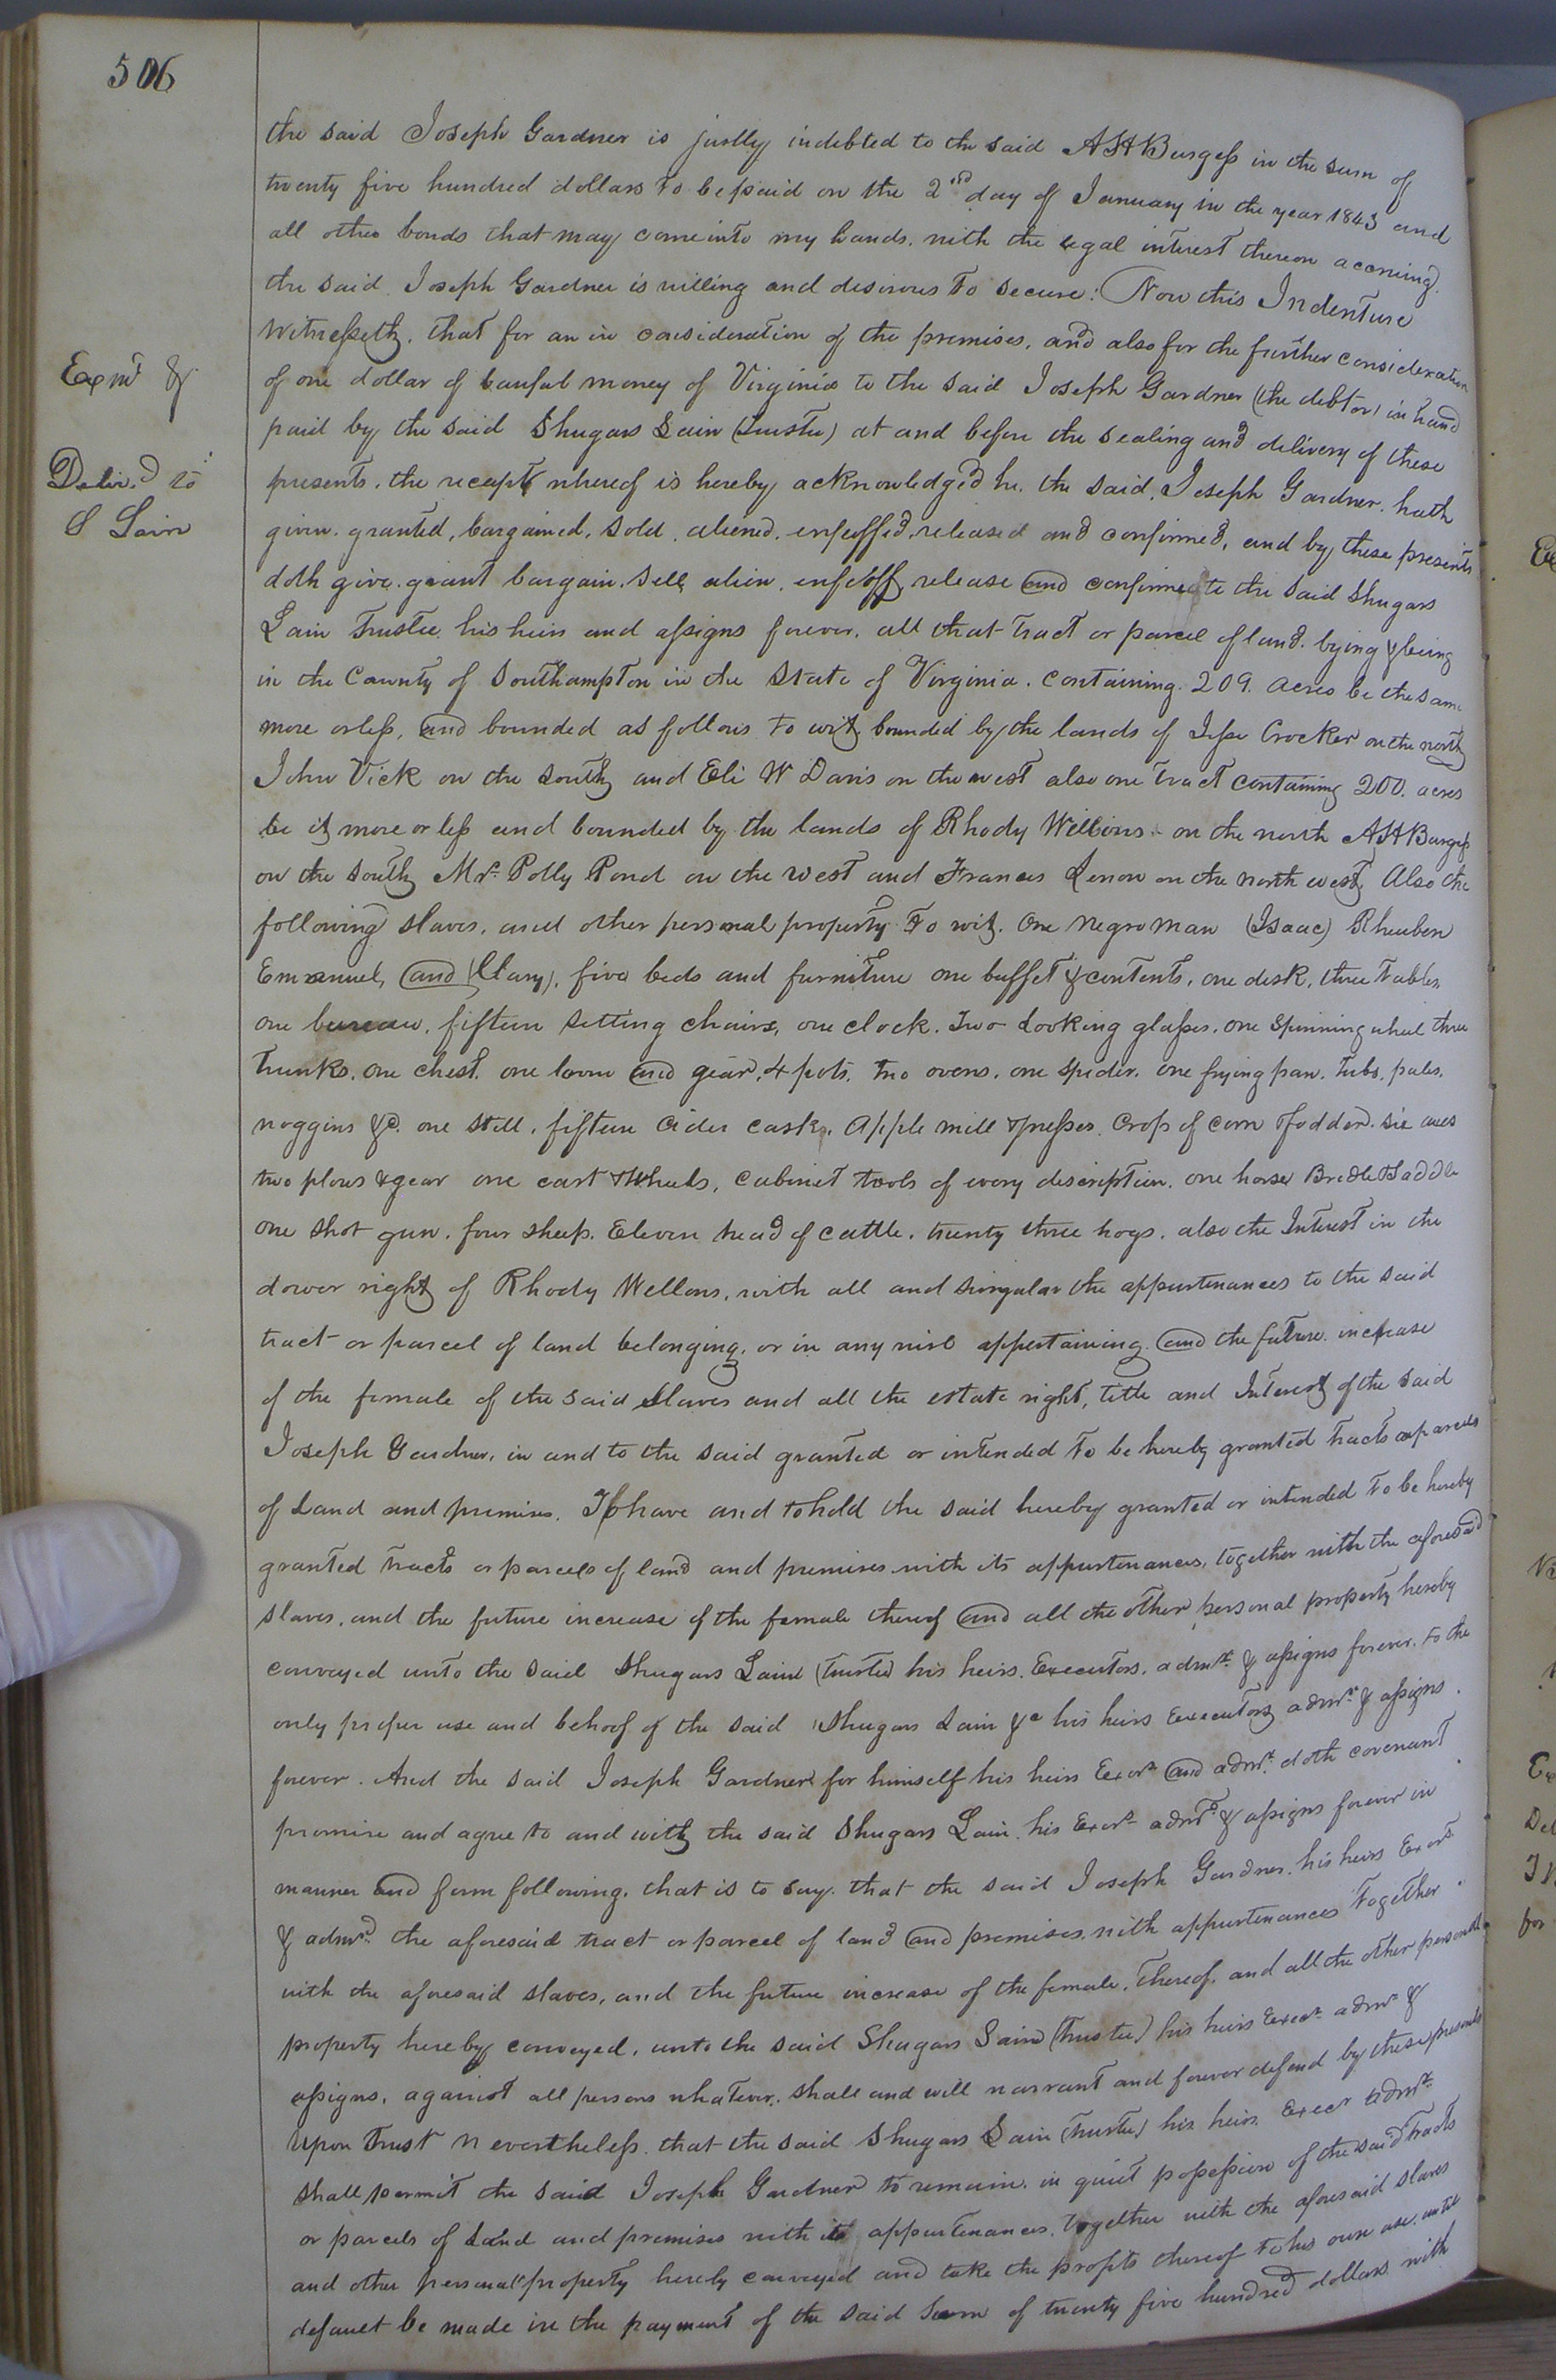 506
the said Joseph Gardner is justly indebted to the said A H Burgess in the sum of
twenty five hundred dollars to be paid on the 2nd day of January in the year 1843 and
all other bonds that may come into my hands, with the legal interest thereon accruing.
the said Joseph Gardner is willing and desirous to secure: Now this Indenture
Witnesseth, that for an in consideration of the premises, and also for the further consideration
Exmd &
of one dollar of lawful money of Virginia to the said Joseph Gardner (the debtor) in hand
paid by the said Shugars Lain (Trustee) at and before the sealing and delivery of these
Deliv.d to
presents, the receipt whereof is hereby acknowledged he, the said, Joseph Gardner, hath
S Lain
given, granted, bargained, sold, aliened, enfeoffed, released and confirmed, and by these presents
doth give, grant bargain, sell, alien, enfeoff, release and confirm to the said Shugars
Lain Trustee his heirs and assigns forever, all that tract or parcel of land, lying & being
in the County of Southampton in the State of Virginia, containing 209 acres be the same
more or less, and bounded as follows to wit, bounded by the lands of Jesse Crocker on the north
John Vick on the south and Eli W Davis on the west also one tract containing 200 acres
be it more or less and bounded by the lands of Rhody Wellons on the north A H Burgess
on the south Mrs. Polly Pond on the west and Frances on the north west, Also the
following slaves, and other personal property to wit. One negro man (Isaac) Rheuben
Emanuel, and Mary), five beds and furniture one buffet & contents, one desk, three tables,
one bureau, fifteen setting chairs, one clock, Two Looking glasses, one Spinning wheel three
trunks, one chest, one loom and gear, 4 pots, two ovens, one spider, one frying pan, tubs, pales,
noggins &c. one still, fifteen cider casks, apple mill & presses, Crop of corn & fodder, six axes
two plows & gear one cart & wheels, cabinet tools of every description, one horse Bridle & Saddle
one shot gun, four sheep, Eleven head of cattle, twenty three hogs, also the Interest in the
dower right of Rhody Wellons, with all and singular the appurtenances to the said
tract or parcel of land belonging, or in any wise appertaining and the future increase
of the female of the said slaves and all the estate right, title and Interest of the said
Joseph Gardner, in and to the said granted or intended to be hereby granted tracts or parcels
of Land and premises, To have and to hold the said hereby granted or intended to be hereby
granted tracts or parcels of land and premises with its appurtenances, together with the aforesaid
slaves, and the future increase of the female thereof and all the other personal property hereby
conveyed unto the said Shugars Lain (Trustee) his heirs, Executors, admrs. & assigns forever, to the
only proper use and behoof of the said Shugars Lain &c his heirs Executors admrs. & assigns
forever. And the said Joseph Gardner for himself his heirs Exors and admrs. doth covenant
promise and agree to and with the said Shugars Lain, his Exors admrs & assigns forever in
manner and form following, that is to say, that the said Joseph Gardner, his heirs Exors
& admrs. the aforesaid tract or parcel of land and premises, with appurtenances together
with the aforesaid slaves, and the future increase of the female, thereof, and all the other personal
property hereby conveyed, unto the said Shugars Lain (Trustee) his heirs Execr. admrs &
assigns, against all persons whatever, shall and will warrant and forever defend by these presents
Upon Trust Nevertheless, that the said Shugars Lain (Trustee) his heirs Execr admrs.
shall permit the said Joseph Gardner to remain in quiet possession of the said tracts
or parcels of Land and premises with its appurtenances, together with the aforesaid slaves
and other personal property hereby conveyed and take the profits thereof to his own use, until
default be made in the payment of the said Sum of twenty five hundred dollars with